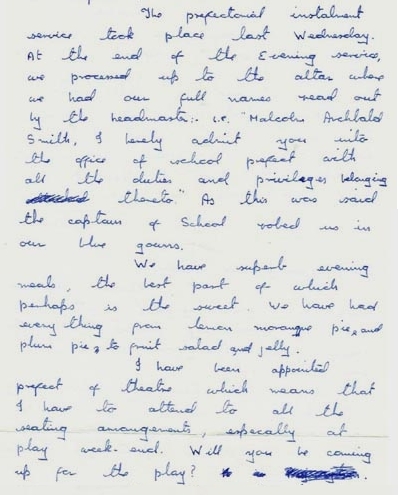 The prefectorial instalment
service took place last Wednesday.
At the end of the Evening service,
we processed up to the altar where
we had our full names read out
by the headmaster:- i.e. "Malcolm Archbald
Smith, I hereby admit you into
the office of school prefect with
all the duties and privileges belonging
thereto." As this was said
the captain of School robed us in
our blue gowns.
We have superb evening
meals, the best part of which
perhaps is the sweet. We have had
every thing from lemon morangue pie, and
plum pie, to fruit salad and jelly.
I have been appointed
prefect of theatre which means that
I have to attend to all the
seating arrangements, especially at
play week-end. Will you be coming
up for the play?